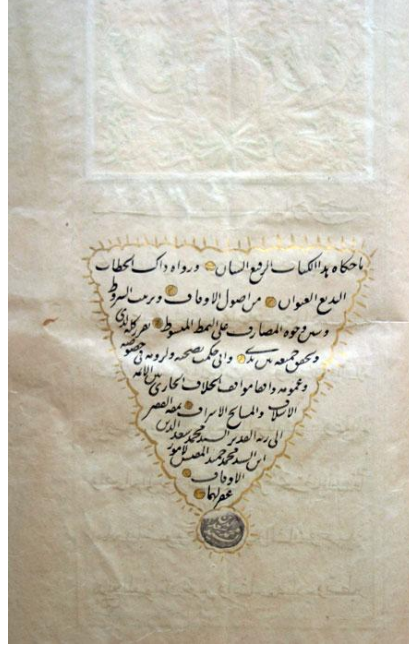 ما حكاه هذا الكتاب الرفيع الشان ورواه ذاك الخطاب
البديع العنوان من اصول الاوقاف وترتيب الشروط
وتبيين وجوه المصارف على النمط المبسوط تقرر كله لدي
وتحقق جميعه بين يدي واني حكمت بصحته ولزومه في خصوصه
وعمومه واقفا مواقف الخلاف الجاري بين الائمة
الاسلاف والمشايخ الاشراف نمقه الفقير
الى ربه القدير السيد محمد سعد الدين
ابن السيد محمد المفتش لامور
الاوقاف
غفر لهما